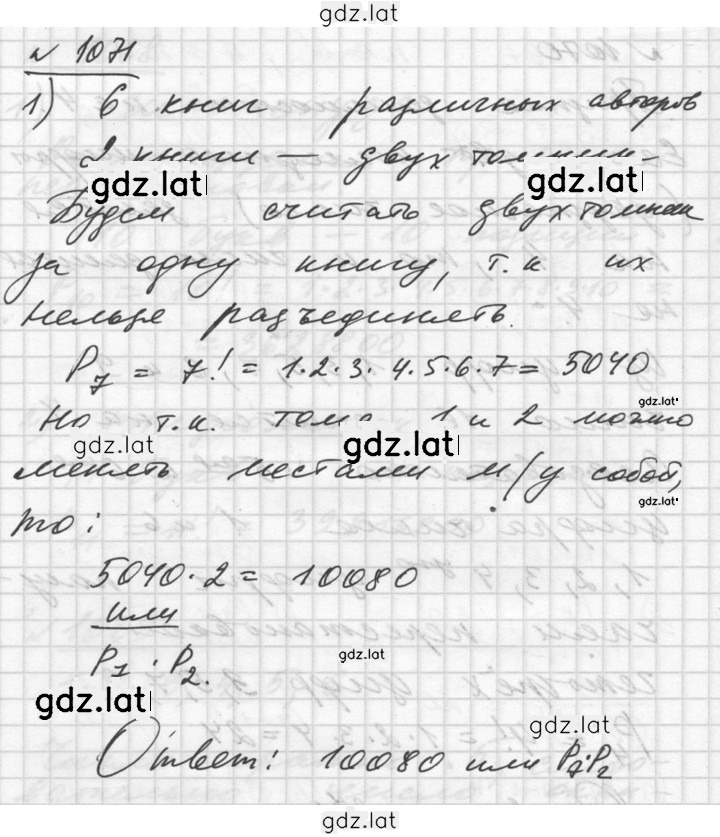 gdz.lat
№ 1071
1) 6 книг различных авторов
2 книги — двухтомник.
gdz.lat gdz.lat
Будем считать двухтомник
за одну книгу, т.к их
нельзя разъединять.
P7 = 7! = 1·2·3·4·5·6·7 = 5040
gdz.lat
Но т.к. тома 1 и 2 можно
gdz.lat gdz.lat
менять местами м/у собой,
gdz.lat
то:
5040·2 = 10080
или
P7 · P2.
gdz.lat
gdz.lat
gdz.lat
Ответ: 10080 или P7·P2
gdz.lat